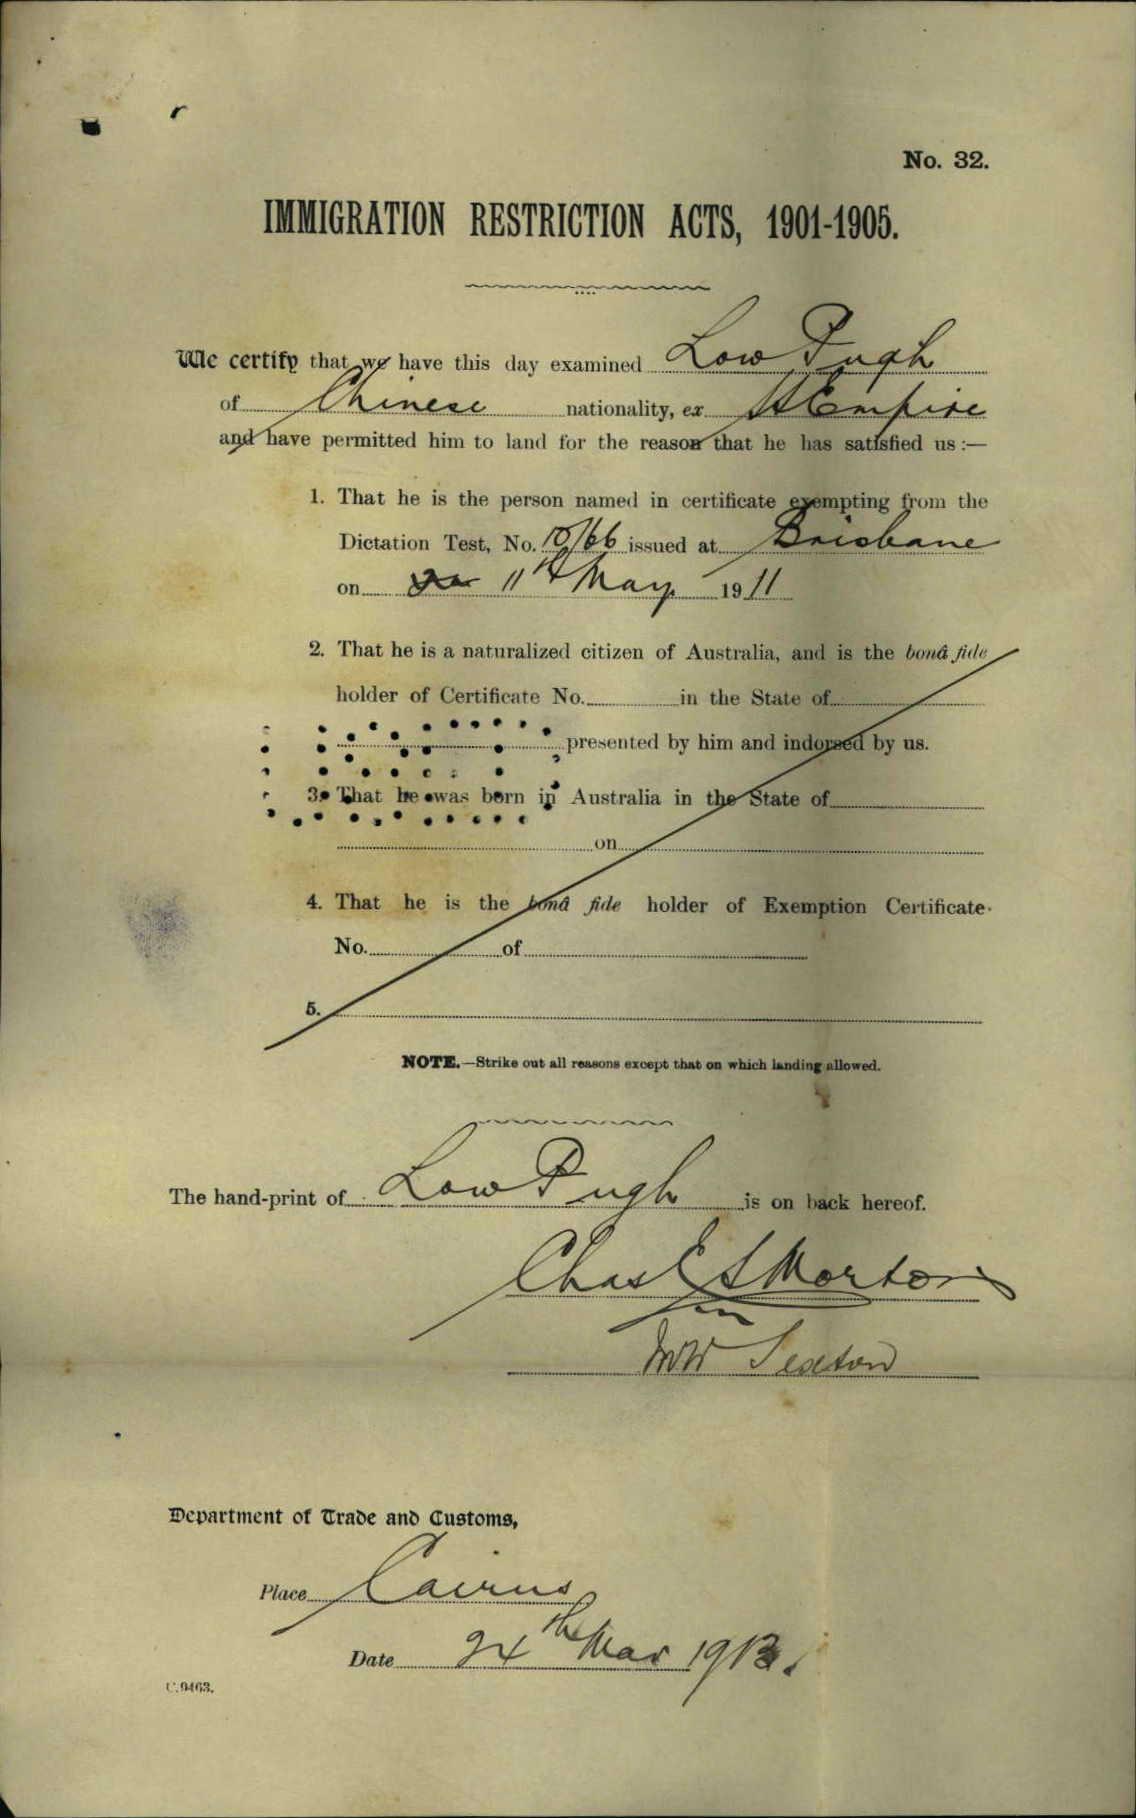 No. 32.
IMMIGRATION RESTRICTION ACTS, 1901-1905.
We certify that we have this day examined Low Pugh
of Chinese nationality, ex SS Empire
and have permitted him to land for the reason that he has satisfied us :—
1. That he is the person named in certificate exempting from the
Dictation Test, No. 10/66 issued at Brisbane
on 11th May 1911
2. That he is a naturalized citizen of Australia, and is the bonâ fide
holder of Certificate No. in the State of
presented by him and indorsed by us.
3. That he was born in Australia in the State of
on
4. That he is the bonâ fide holder of Exemption Certificate
No. of
5.
NOTE.—Strike out all reasons except that on which landing allowed.
The hand-print of Low Pugh is on back hereof.
Chas E S Morton
Sexton
Department of Trade and Customs,
Place Cairns
Date 24th Mar 1913.
C.9463.